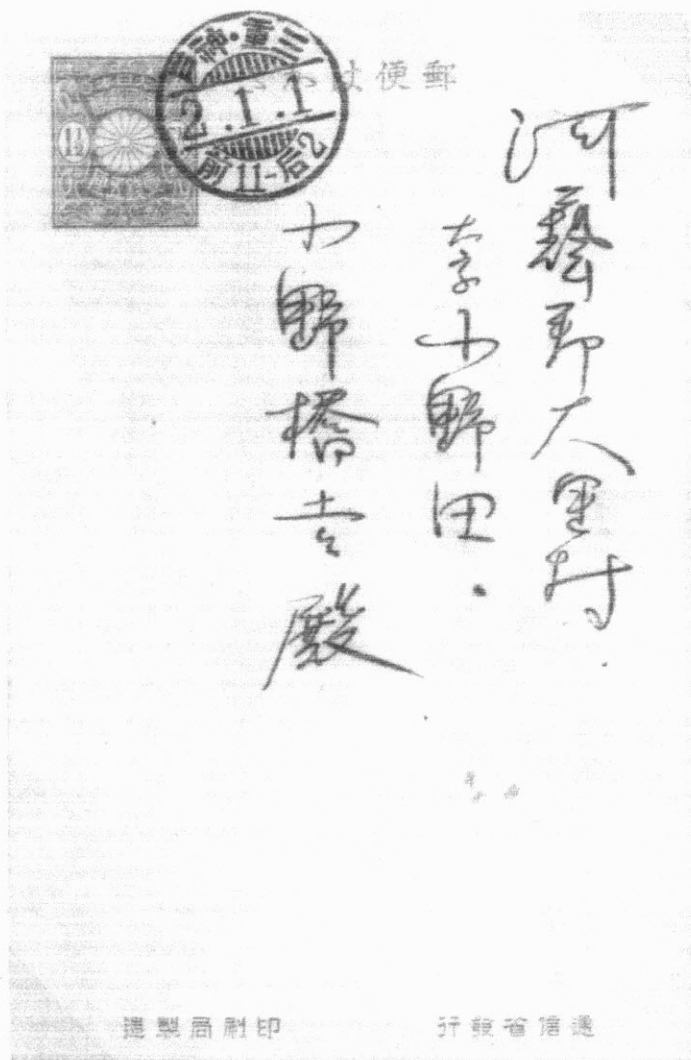 郵便
三重・神戸
.1.1
前11-后2
1½
河藝郡大里村
大字小野田
小野橋吉殿
遞信省發行
印刷局製造